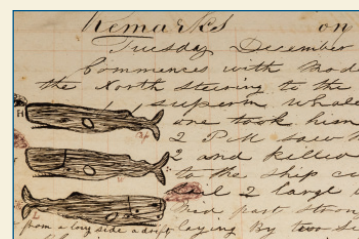 Remarks on
Tuesday December
Commences with Mod
the North steering to the
sperm whal
one took him
2 PM saw
2 and killed
to the ship
2 large
part
from a long side a drift laying By two